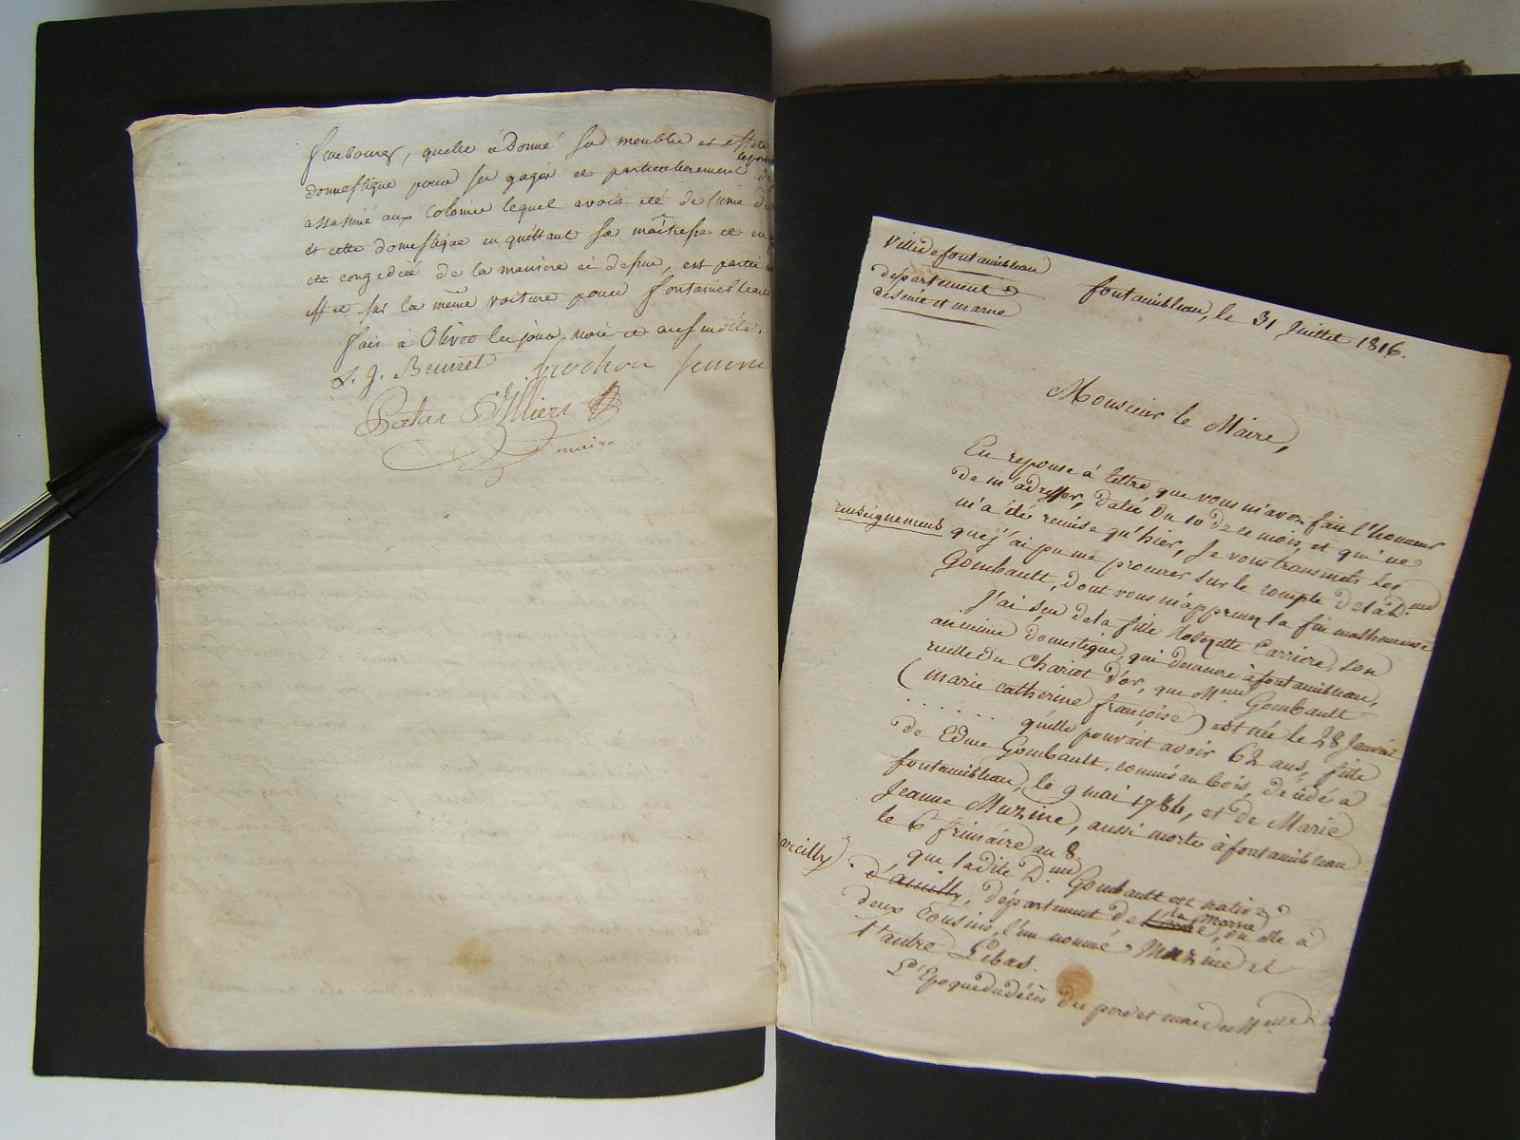 faubourg, quelle a donné ses meubles et effets
domestique pour ses gages et particulierement
assassiné aux Colonies lequel avoit été
et cette domestique en quittant sa maîtresse et
été congediée de la maniere ci dessus, est partie
sur la même voiture pour fontainebleau
fait à Olivet les jour, mois et an
L. g. Beuzret
maire
Ville de fontainebleau
departement
de seine et marne
fontainebleau, le 31 Juillet 1816.
Monsieur le Maire,
En reponse à lettre que vous m'avez fait l'honneur
de m'adresser, datée du 10 de ce mois, et qui ne
m'a été remise qu'hier, Je vous transmets les
renseignements que j'ai pu me procurer sur le compte de la D.me
Gombault, dont vous m'apprenez la fin malheureuse
J'ai sçu de la fille Rosette Carriere, son
ancienne domestique, qui demeure à fontainebleau,
ruelle du Chariot d'or, que Mme Gombault
(marie catherine françoise) est née le 28 Janvier
. . . . . . qu'elle pouvait avoir 62 ans, fille
de Edme Gombault, commis au bois, décédé à
fontainebleau, le 9 mai 1786, et de Marie
Jeanne Muzine, aussi morte à fontainebleau
le 6 frimaire an 8.
que ladite D.me Gombault est native
d'arcilly, département de la marne, où elle a
deux Cousins, l'un nommé Muzine et
l'autre Lebas.
L'Epoque du décès des père et mere de Mme